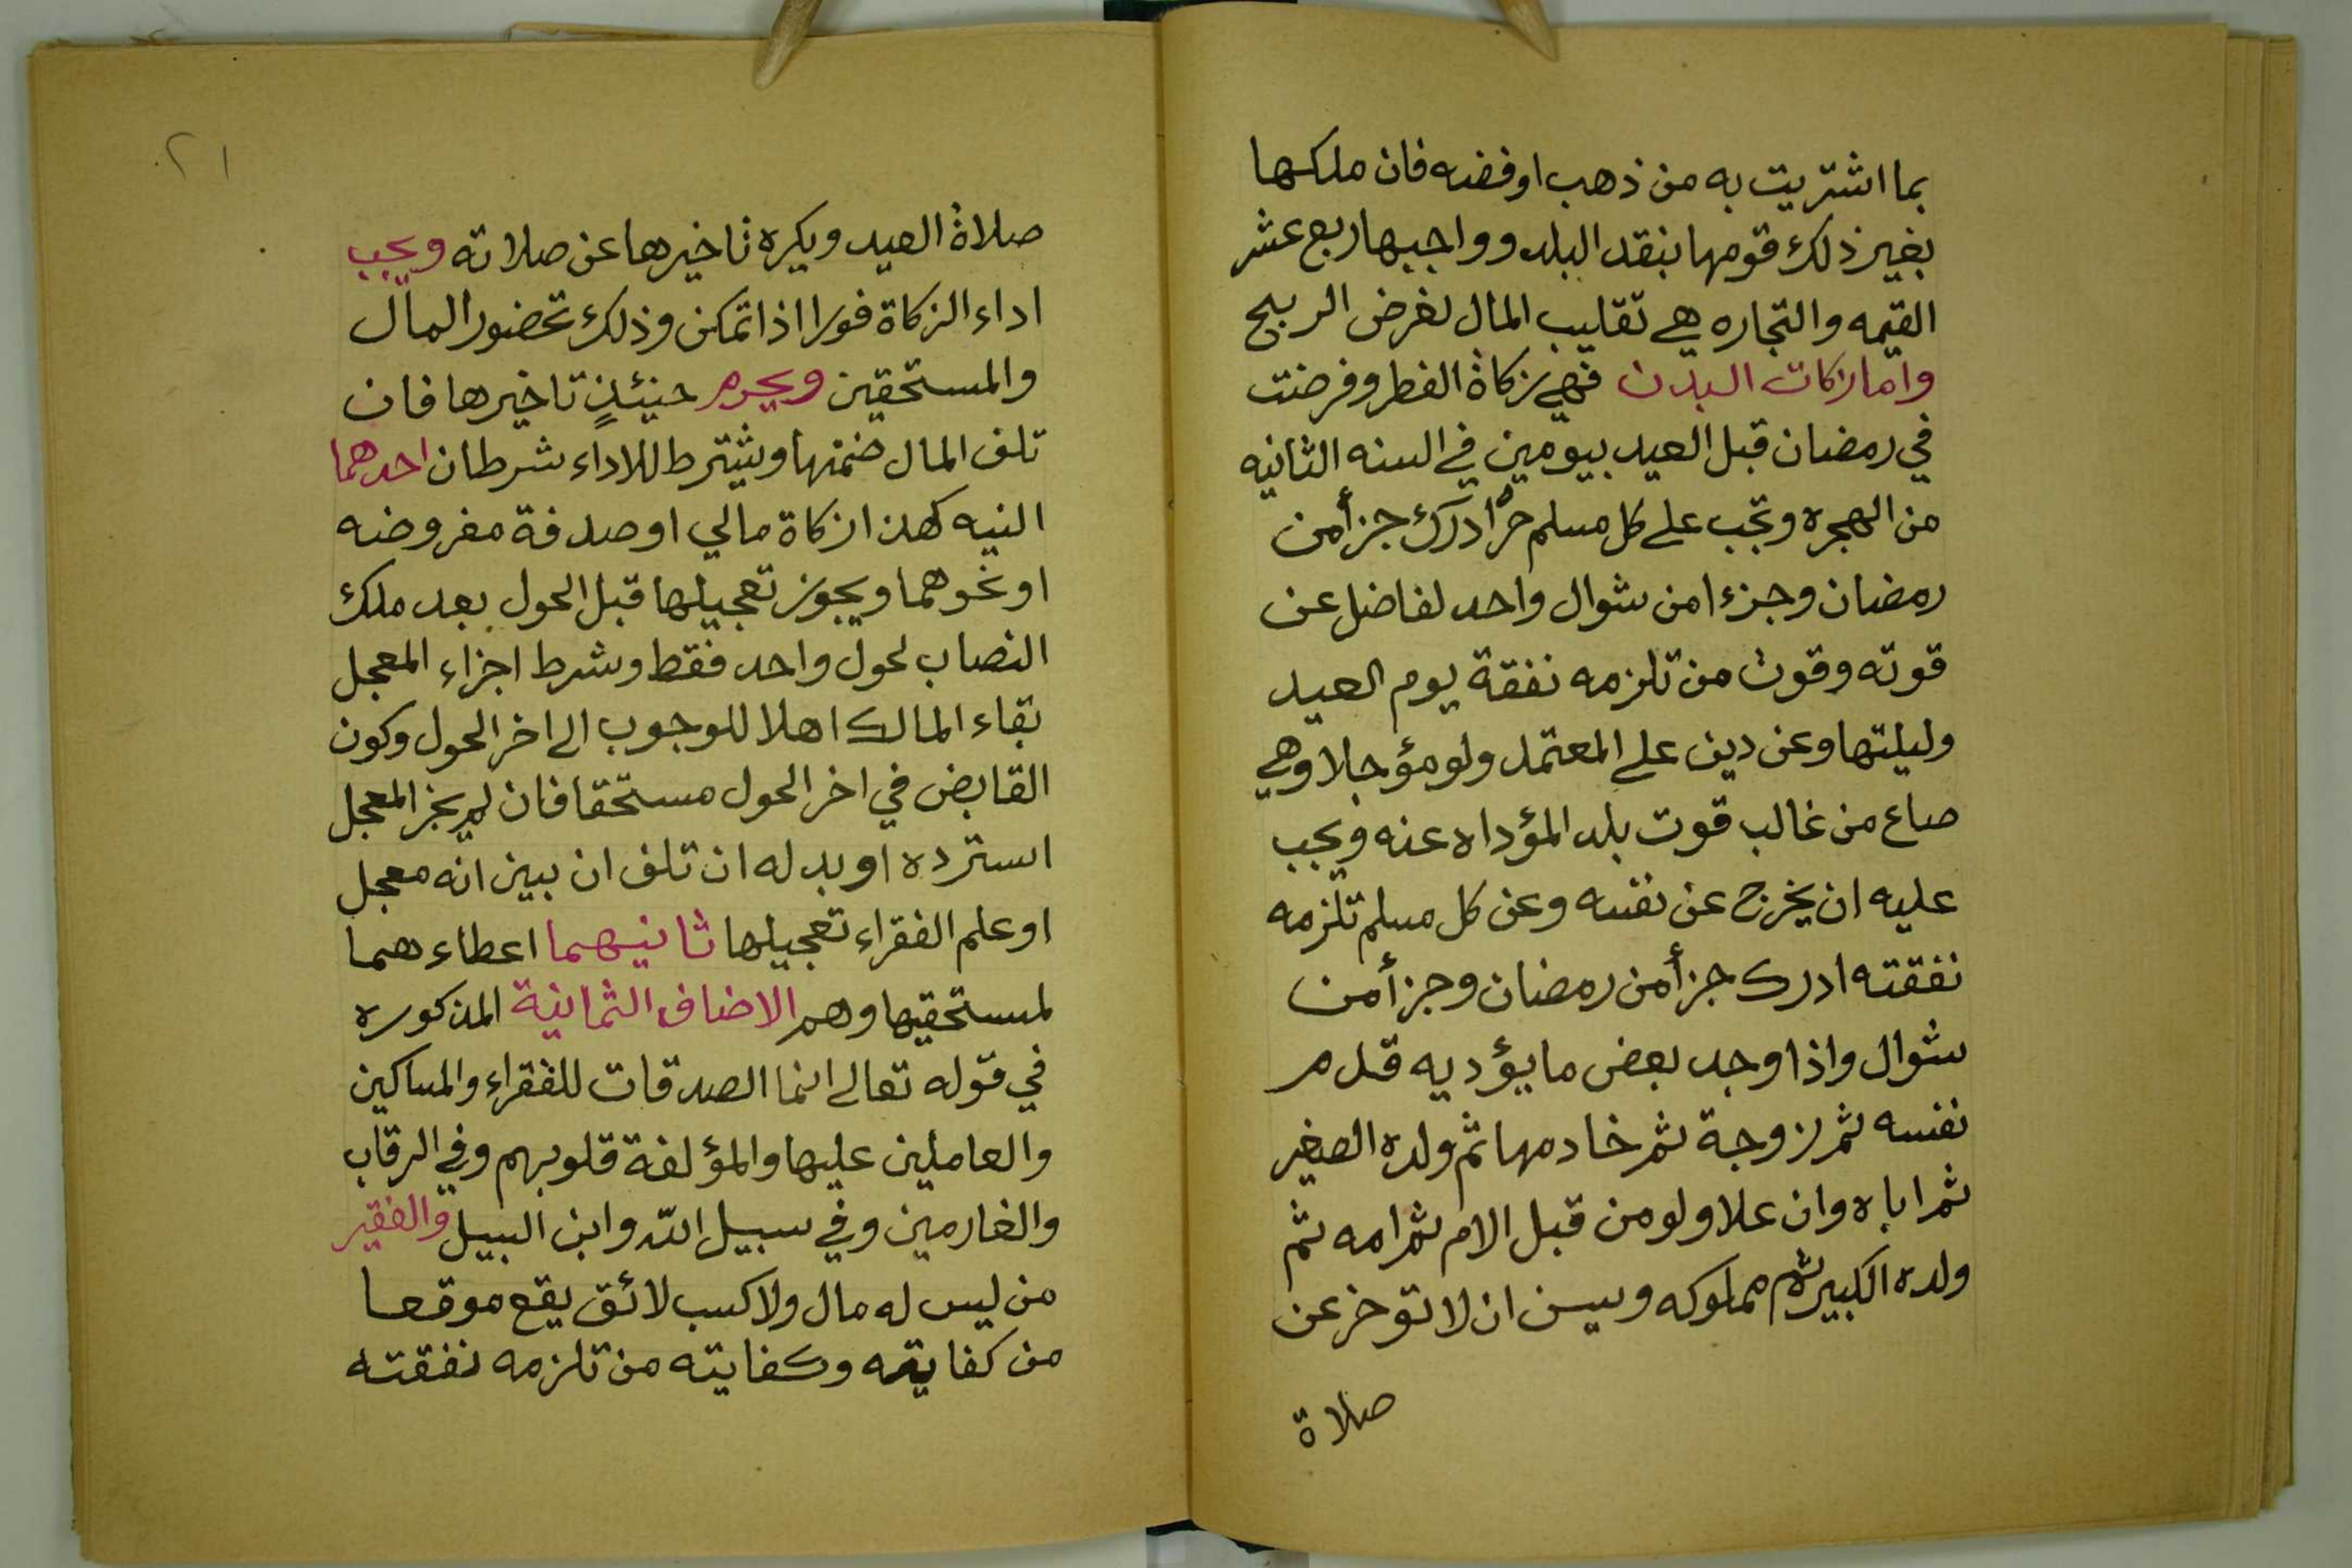 بما اشتريت به من ذهب او فضه فان ملكها
بغير ذلك قومها بنقد البلد وواجبها ربع عشر
القيمه والتجاره هي تقليب المال لغرض الربح
واما زكات البدن فهي زكاة الفطر وفرضت
في رمضان قبل العيد بيومين في السنه الثانيه
من الهجره وتجب على كل مسلم حر ادرك جزأ من
رمضان وجزءا من شوال واحد لفاضل عن
قوته وقوت من تلزمه نفقة يوم العيد
وليلتها وعن دين على المعتمد ولو مؤجلا وهي
صاع من غالب قوت بلد المؤداه عنه ويجب
عليه ان يخرج عن نفسه وعن كل مسلم تلزمه
نفقته ادرك جزأ من رمضان وجزأ من
شوال واذا وجد بعض ما يؤديه قدم
نفسه ثم زوجة ثم خادمها ثم ولده الصغير
ثم اباه وان علا ولو من قبل الام ثم امه ثم
ولده الكبير ثم مملوكه ويسن ان لا تؤخر عن
صلاة
٢١
صلاة العيد ويكره تاخيرها عن صلاته ويجب
اداء الزكاة فورا اذا تمكن وذلك تحضور المال
والمستحقين ويحرم حنيئذٍ تاخيرها فان
تلف المال ضمنها ويشترط للاداء شرطان احدهما
النيه كهذا زكاة مالي او صدقة مفروضه
او نحوهما ويجوز تعجيلها قبل الحول بعد ملك
النصاب لحول واحد فقط وشرط اجزاء المعجل
بقاء المالك اهلا للوجوب الى اخر الحول وكون
القابض في اخر الحول مستحقا فان لم يجز المعجل
استرده او بدله ان تلف ان بين انه معجل
او علم الفقراء تعجيلها ثانيهما اعطاءهما
لمستحقيها وهم الاضاف الثمانية المذكوره
في قوله تعالى انما الصدقات للفقراء والمساكين
والعاملين عليها والمؤلفة قلوبهم وفي الرقاب
والغارمين وفي سبيل الله وابن البيل والفقير
من ليس له مال ولا كسب لائق يقع موقعا
من كفايته وكفايته من تلزمه نفقته